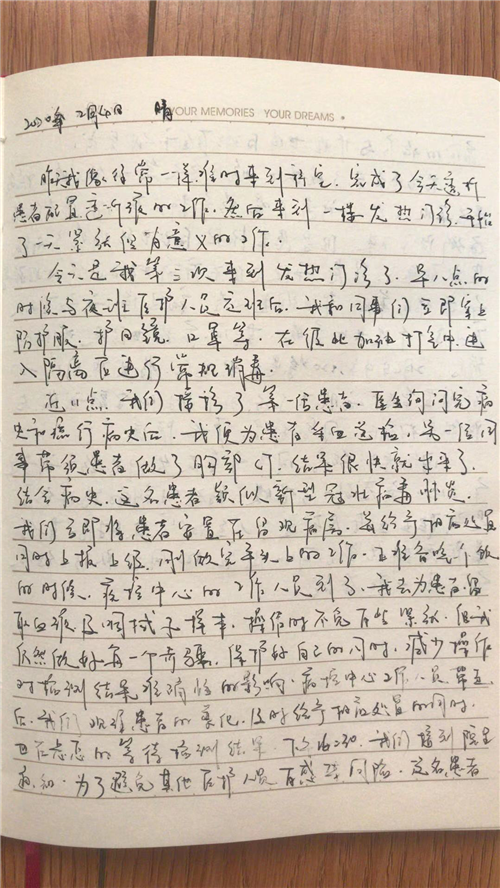 2020年 2月4日 晴
YOUR MEMORIES YOUR DREAMS
昨天我像往常一样准时来到科室，完成了今天透析
患者配置透析液的工作。然后来到一楼发热门诊，开始
了一天紧张但有意义的工作。
今天是我第三次来到发热门诊了，早八点的
时候与夜班医护人员交班后，我和同事们立即穿上
防护服、护目镜、口罩等，在彼此加油打气中，进
入隔离区进行常规消毒。
近11点，我们接诊了第一位患者，医生询问完病
史和流行病史后，我便为患者采血送检，另一位同
事带领患者做了胸部CT，结果很快就出来了，
结合病史，这名患者疑似新型冠状病毒肺炎。
我们立即将患者安置在留观病房，并给予相应处置
同时上报上级，刚做完手头上的工作，正准备吃个饭
的时候，疾控中心的工作人员到了，我去为患者留
取血液及咽拭子标本，操作时不免有些紧张，但我
仍然做好每一个步骤，保护好自己的同时，减少操作
对检测结果准确性的影响。疾控中心工作人员带走
后，我们观察患者的变化，及时给予相应处置的同时，
也在忐忑的等待检测结果。下午16:30，我们接到院里
通知，为了避免其他医护人员有感染风险，这名患者